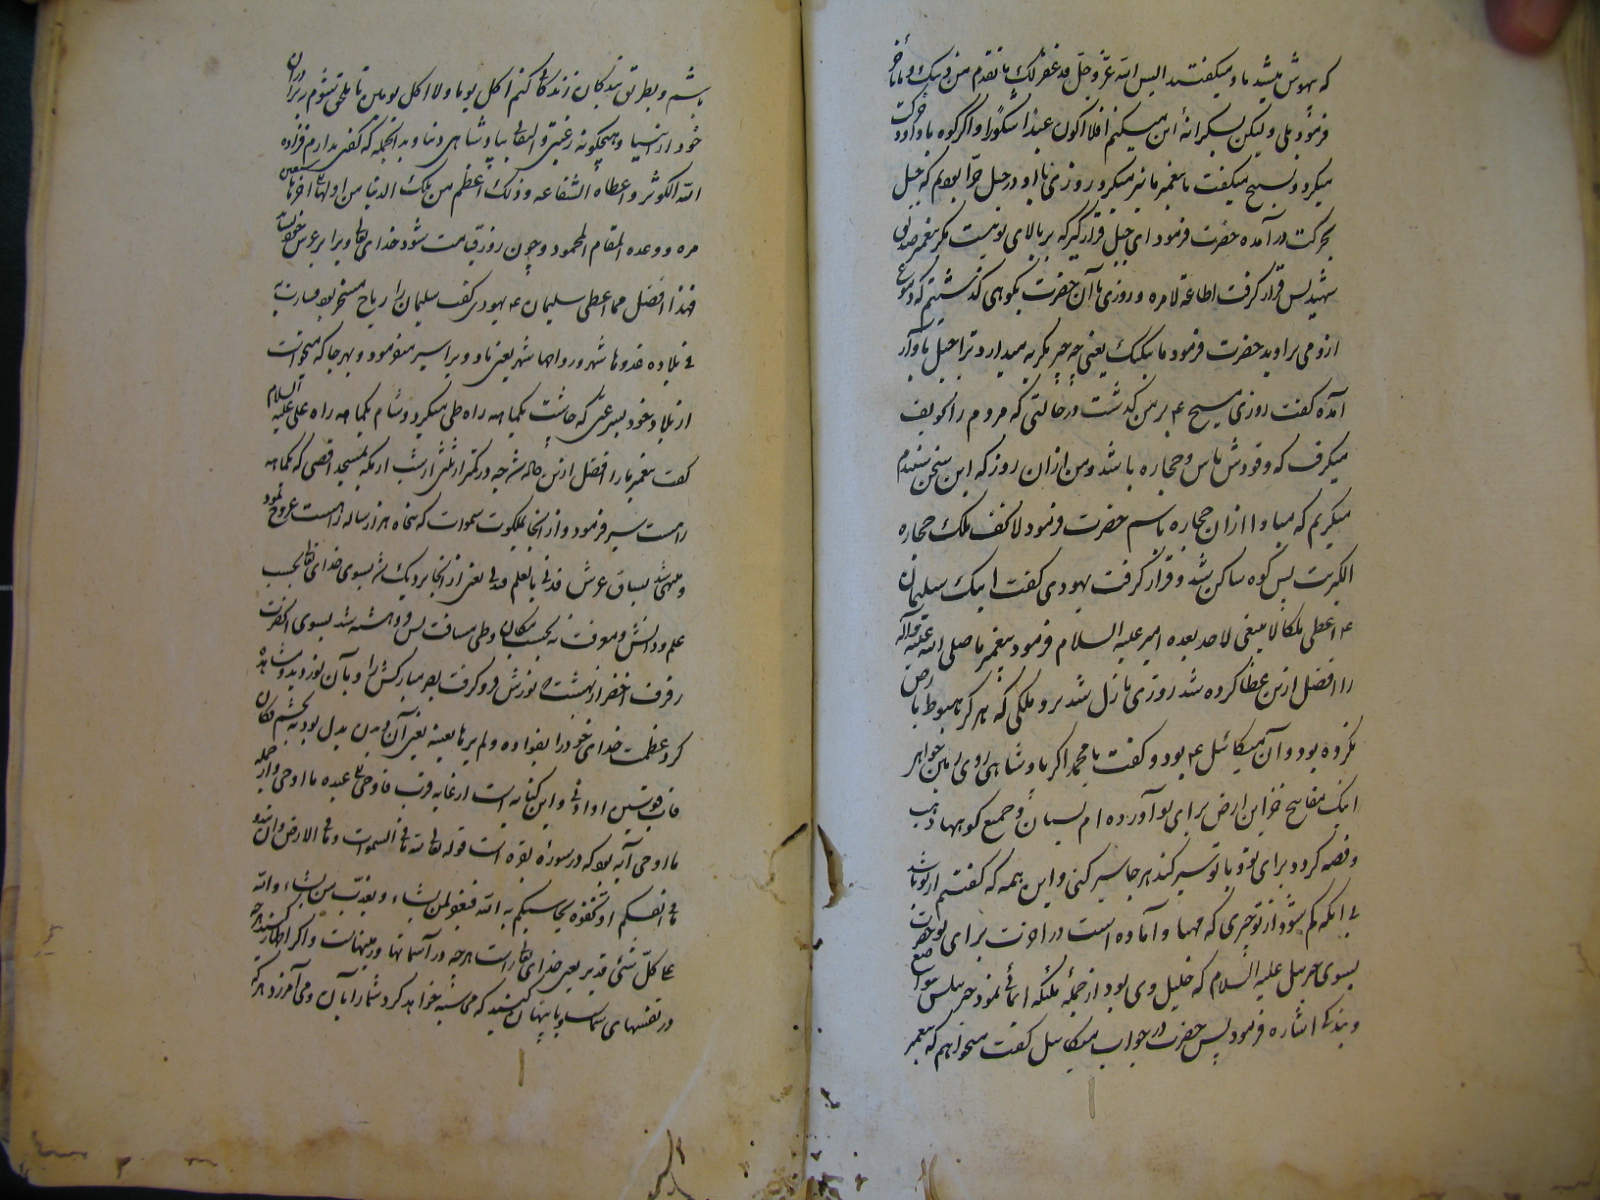 که بیهوش میشد ما و میکفتند الیس الله عزّ و جلّ قد غفر لک ما تقدم من ذنبک و ما تأخر
فرمود بلی و لیکن بشکرانهٔ این میکنم افلا اکون عبدًا شکورًا و اگر کوه با داود حرکت
میکرد و تسبیح میکفت با پیغمبر ما نیز میکرد روزی با او در جبل حرا بودیم که جبل
بحرکت درآمده حضرت فرمود ای جبل قرار گیر که بر بالای تو نیست مکر پیغمبر صدیق
شهید پس قرار گرفت اطاعة لامره و روزی با آن حضرت بکوهی گذشتیم که دموع
ازو می براوید حضرت فرمود ما یبکیک یعنی چه چیز بگریه میدارد ترا جبل باواز
آمده گفت روزی مسیح ء بر من گذشت در حالتی که مردم را تخویف
میکرد که وقودش ناس و حجاره باشد و من از آن روز که این سخن شنیدم
میگریم که مبادا از آن حجاره باشم حضرت فرمود لا تخف تلک حجاره
الکبریت پس کوه ساکن شد و قرار گرفت یهودی گفت اینک سلیمان
ء اعطی ملکًا لا ینبغی لاحد بعده امیر علیه السلام فرمود پیغمبر ما صلی الله علیه و آله
را افضل ازین عطا کرده شد روزی نازل شد برو ملکی که هرگز هبوط بارض
نکرده بود و آن میکائیل ء بود و گفت یا محمد اگر پادشاهی روی زمین خواهی
اینک مفاتیح خزاین ارض برای تو آورده ام بستان و جمیع کوهها ذهب
و فضه گردد برای تو و با تو سیر کند هر جا سیر کنی و این همه که گفتم از تو باشد
بی انکه کم شود از تو چیزی که مهیا و آماده است در آخرت برای تو حضرت
بسوی جبرئیل علیه السلام که خلیل وی بود از جمله ملئکه ایمائی نمود جبرئیل بتواضع
و بندگی اشاره فرمود پس حضرت در جواب میکائیل گفت میخواهم که پیغمبر
باشم و بطریق بندگان زندگانی کنم اکل یوما و لا اکل یومین تا ملحق شوم ببرادران
خود از انبیا و هیچکونه رغبتی و التفات بپادشاهی دنیا و بدانجمله که گفتی ندارم فزاده
الله الکوثر و اعطاه الشفاعه و ذلک اعظم من ملک الدنیا من اولها الی آخرها سبعین
مره و وعده المقام المحمود و چون روز قیامت شود خدای تعالی ویرا بر عرش خود نشاند
فهذا افضل مما اعطی سلیمان ء یهودی گفت سلیمان را ریاح مسخر بود فسارت به
فی بلاده غدوها شهر و رواحها شهر یعنی باد ویرا سیر میفرمود و بهر جا که میخواست
از بلاد خود بسرعتی که چاشت یکماهه راه طی میکرد و شام یکماهه راه علی علیه السلام
گفت پیغمبر ما را افضل ازین داده شد چه در کمتر از ثلثی از شب از مکه بمسجد اقصی که یکماهه
راهست سیر فرمود و از انجا بملکوت سموات که پنجاه هزار ساله راهست عروج نمود
و منتهی شد بساق عرش فدنی بالعلم فتدلی یعنی از انجا نزدیک شد بسوی خدای تعالی بحسب
علم و دانش و معرفت نه بحسب مکان و طی مسافت پس فروهشته شد بسوی آنحضرت
رفرف اخضر از بهشت و نورش فرو گرفت بصر مبارکش را و بآن نور دید و مشاهده
کرد عظمت خدای خود را بفواده و لم یرها بعینه یعنی آن دیدن بدل بود نه بچشم فکان
قاب قوسین او ادنی و این کنایه است از غایه قرب فاوحی الی عبده ما اوحی و از جمله
ما اوحی آیه بود که در سورهٔ بقره است قوله تعالی لله ما فی السموات و ما فی الارض و ان تبدوا
ما فی انفسکم او تخفوه یحاسبکم به الله فیغفر لمن یشاء و یعذب من یشاء و الله
علی کلّ شئ قدیر یعنی خدای تعالی راست هر چه در آسمانها و زمینهاست و اگر اظهار کنید هر چه
در نفسهای شماست یا پنهان کنید که محاسبه خواهد کرد شما را بآن و می آمرزد هر که